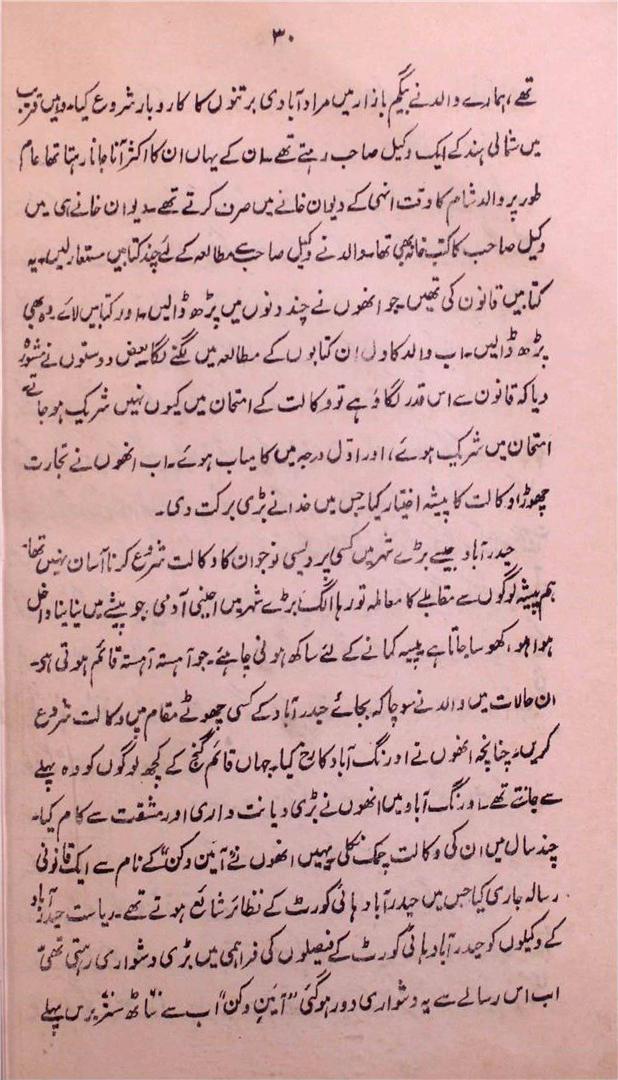 ۳۰
تھے، ہمارے والد نے بیگم بازار میں مراد آبادی برتنوں کا کاروبار شروع کیا۔ وہیں قریب
میں شمالی ہند کے ایک وکیل صاحب رہتے تھے۔ ان کے یہاں ان کا اکثر آنا جانا رہتا تھا عام
طور پر والد شام کا وقت انہی کے دیوان خانے میں صرف کرتے تھے۔ دیوان خانے ہی میں
وکیل صاحب کا کتب خانہ بھی تھا۔ والد نے وکیل صاحب سے مطالعہ کے لئے چند کتابیں مستعار لیں۔ یہ
کتابیں قانون کی تھیں۔ جو انھوں نے چند دنوں میں پڑھ ڈالیں۔ اور کتابیں لائے۔ وہ بھی
پڑھ ڈالیں۔ اب والد کا دل ان کتابوں کے مطالعہ میں لگنے لگا۔ بعض دوستوں نے مشورہ
دیا کہ قانون سے اس قدر لگاؤ ہے تو وکالت کے امتحان میں کیوں نہیں شریک ہو جاتے
امتحان میں شریک ہوئے، اور اوّل درجہ میں کامیاب ہوئے۔ اب انھوں نے تجارت
چھوڑ وکالت کا پیشہ اختیار کیا۔ جس میں خدا نے بڑی برکت دی۔
حیدر آباد جیسے بڑے شہر میں کسی پردیسی نوجوان کا وکالت شروع کرنا آسان نہیں تھا۔
ہم پیشہ لوگوں سے مقابلے کا معاملہ تو رہا الگ بڑے شہر میں اجنبی آدمی جو پیشے میں نیا نیا داخل
ہوا ہو، کھو سا جاتا ہے پیسہ کمانے کے لئے ساکھ ہونی چاہئے۔ جو آہستہ آہستہ قائم ہوتی ہے۔
ان حالات میں والد نے سوچا کہ بجائے حیدر آباد کے کسی چھوٹے مقام میں وکالت شروع
کریں۔ چنانچہ انھوں نے اورنگ آباد کا رخ کیا۔ جہاں قائم گنج کے کچھ لوگوں کو وہ پہلے
سے جانتے تھے۔ اورنگ آباد میں انھوں نے بڑی دیانت داری اور مشقت سے کام کیا۔
چند سال میں ان کی وکالت چمک نکلی یہیں انھوں نے "آئین دکن" کے نام سے ایک قانونی
رسالہ جاری کیا جس میں حیدر آباد ہائی کورٹ کے نظائر شائع ہوتے تھے۔ ریاست حیدر آباد
کے وکیلوں کو حیدر آباد ہائی کورٹ کے فیصلوں کی فراہمی میں بڑی دشواری رہتی تھی
اب اس رسالے سے یہ دشواری دور ہو گئی "آئین دکن" اب سے ساٹھ ستر برس پہلے